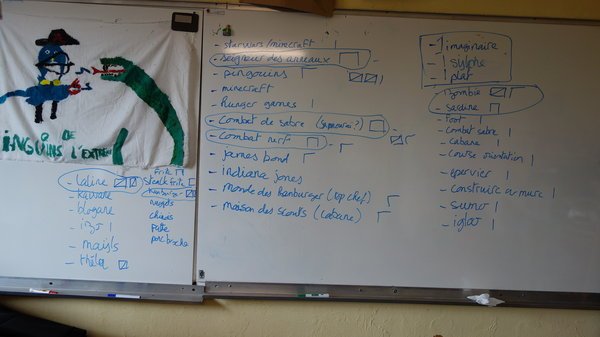 DE
iNGUiNS L'EXTRÊ
- caline
- blogane
- maïs
- théq
frite
steak frite
burger
nuggets
chinois
pate
- starwars/minecraft
- seigneur des anneaux
- pingouins
- minecraft
- hunger games
- combat de sabre (
- combat nerfs
- james bond
- indiana jones
- monde des hamburger (top chef)
- maison des scouts (cabane)
- 1 imaginaire
- 1 sylphe
- 1 plat
- zombie
- sardine
- foot
- combat sabre
- cabane
- course orientation
- epervier
- construire un murc
- sumo
- igloo